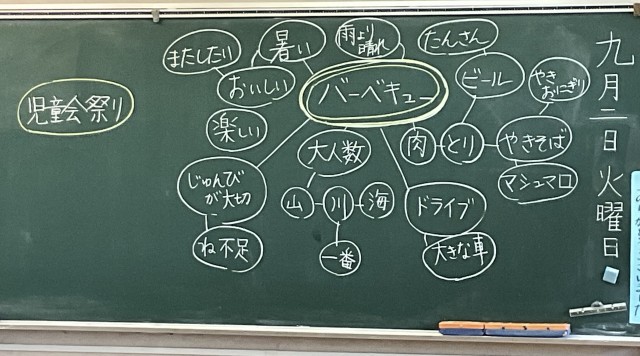 九月二日火曜日
児童会祭り
バーベキュー
またしたい
暑い
おいしい
楽しい
雨より
晴れ
たんさん
ビール
やき
おにぎり
肉
とり
やきそば
マシュマロ
大人数
山
川
海
一番
ドライブ
大きな車
じゅんび
が大切
ね不足